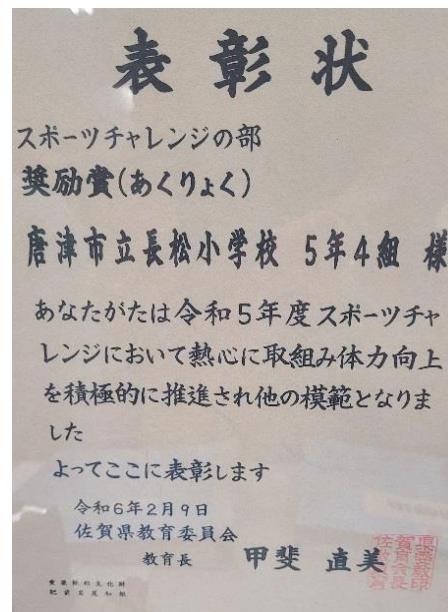 表彰状
スポーツチャレンジの部
奨励賞(あくりょく)
唐津市立長松小学校 5年4組 様
あなたがたは令和5年度スポーツチャ
レンジにおいて熱心に取組み体力向上
を積極的に推進され他の模範となりま
した
よってここに表彰します
令和6年2月9日
佐賀県教育委員会
教育長 甲斐 直美
重要無形文化財
肥前名尾和紙